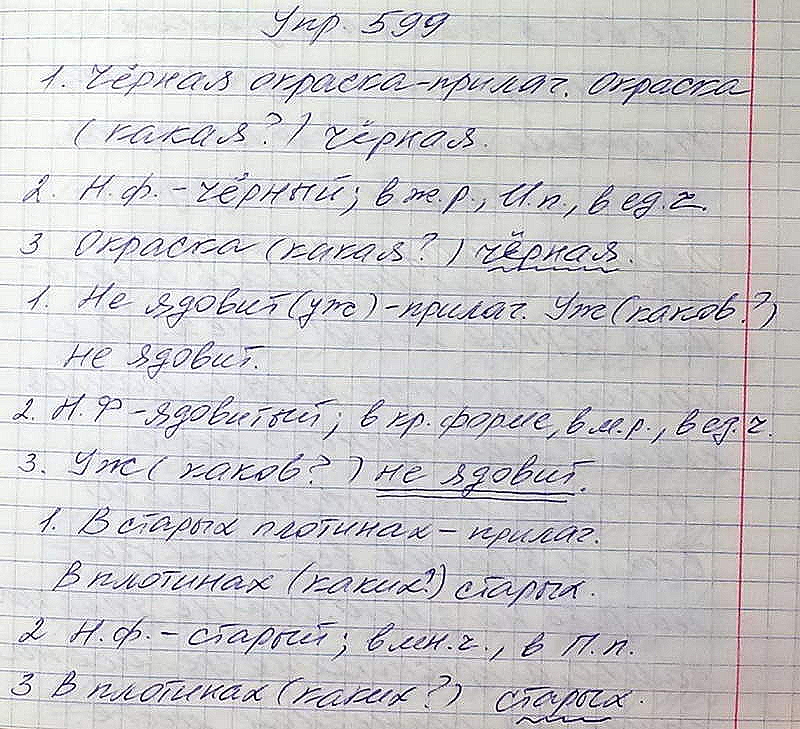 Упр. 599
1. Чёрная окраска-прилаг. Окраска
(какая?) чёрная.
2. Н.ф. - чёрный; в ж.р., И.п., в ед.ч.
3 Окраска (какая?) чёрная.
1. Не ядовит (уж) - прилаг. Уж (каков?)
не ядовит.
2. Н.Ф - ядовитый; в кр. форме, в м.р., в ед.ч.
3. Уж (каков?) не ядовит.
1. В старых плотинах - прилаг.
В плотинах (каких?) старых.
2 Н.ф. - старый; в мн.ч., в П.п.
3 В плотинах (каких?) старых.